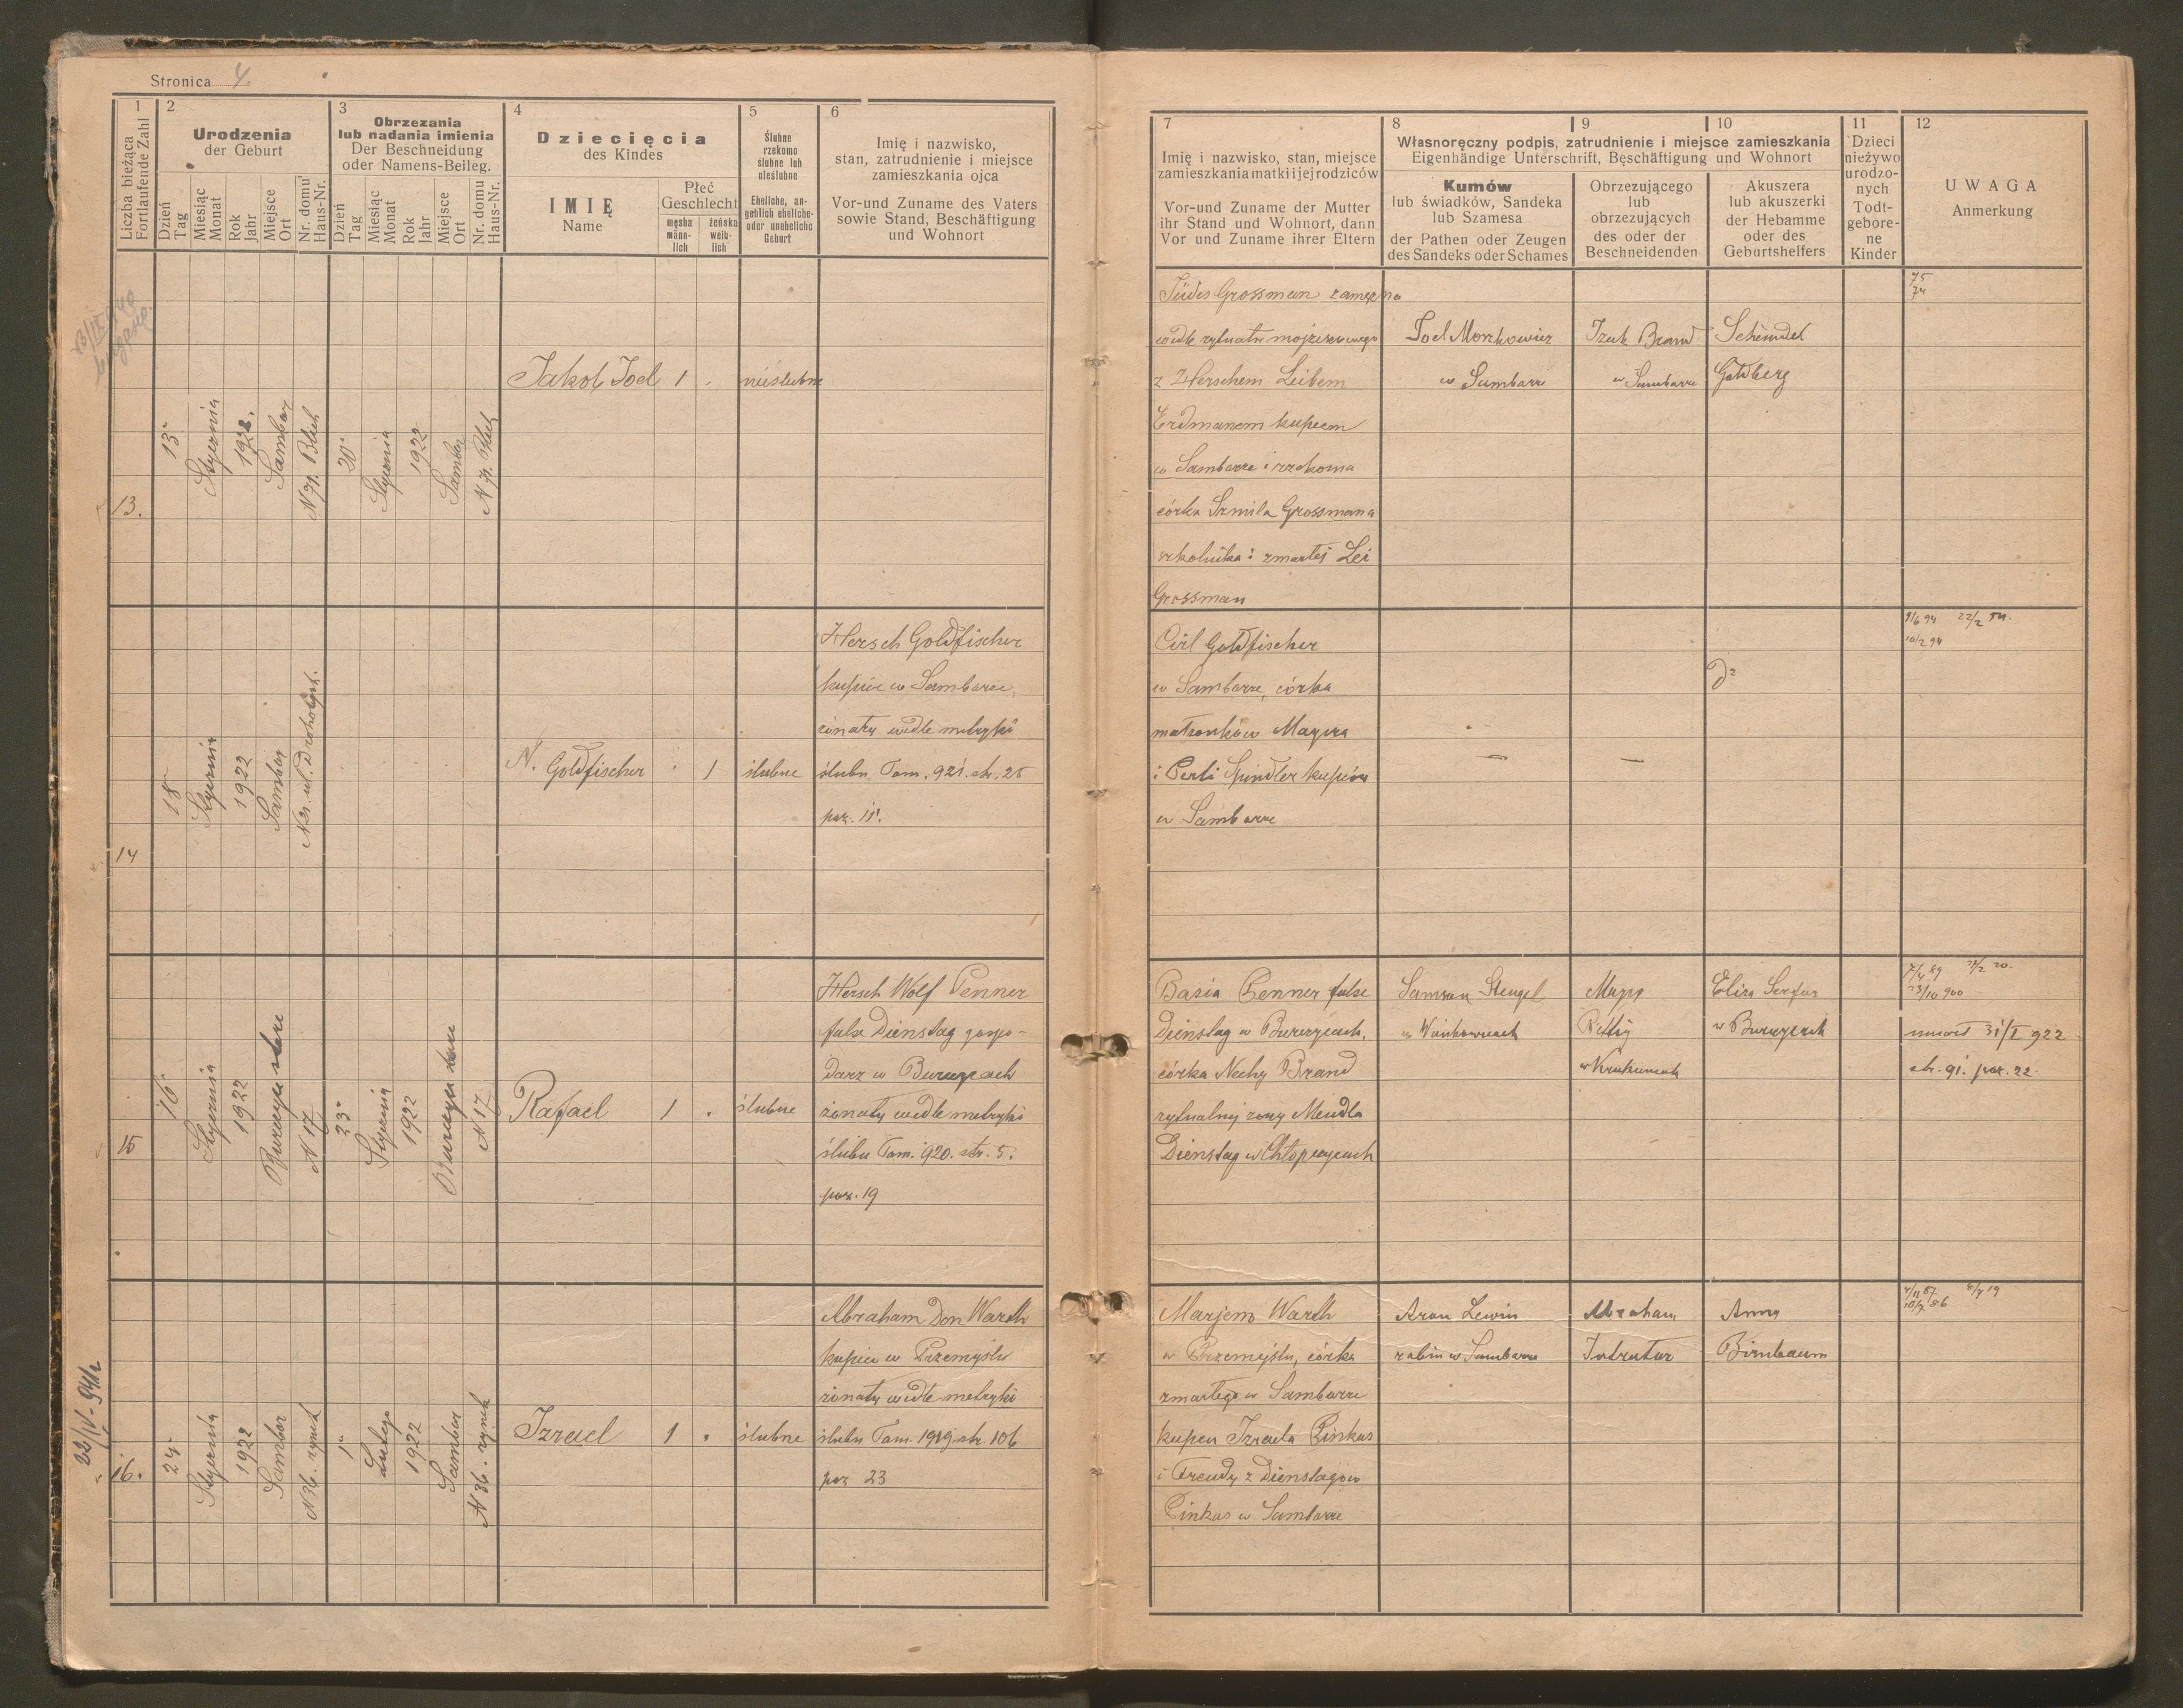 Stronica 4.
1
Liczba bieżąca
Fortlaufende Zahl
2
Urodzenia
der Geburt
Dzień
Tag
Miesiąc
Monat
Rok
Jahr
Miejsce
Ort
Nr. domu
Haus-Nr.
3
Obrzezania
lub nadania imienia
Der Beschneidung
oder Namens-Beileg.
Dzień
Tag
Miesiąc
Monat
Rok
Jahr
Miejsce
Ort
Nr. domu
Haus-Nr.
4
Dziecięcia
des Kindes
IMIĘ
Name
Płeć
Geschlecht
męska
männ-
lich
żeńska
weib-
lich
5
Ślubne
rzekomo
ślubne lub
nieślubne
Eheliche, an-
geblich eheliche-
oder uneheliche
Geburt
6
Imię i nazwisko,
stan, zatrudnienie i miejsce
zamieszkania ojca
Vor-und Zuname des Vaters
sowie Stand, Beschäftigung
und Wohnort
7
Imię i nazwisko, stan, miejsce
zamieszkania matki i jej rodziców
Vor-und Zuname der Mutter
ihr Stand und Wohnort, dann
Vor und Zuname ihrer Eltern
8 9 10
Własnoręczny podpis, zatrudnienie i miejsce zamieszkania
Eigenhändige Unterschrift, Beschäftigung und Wohnort
Kumów
lub świadków, Sandeka
lub Szamesa
der Pathen oder Zeugen
des Sandeks oder Schames
Obrzezującego
lub
obrzezujących
des oder der
Beschneidenden
Akuszera
lub akuszerki
der Hebamme
oder des
Geburtshelfers
11
Dzieci
nieżywo
urodzo-
nych
Todt-
gebore-
ne
Kinder
12
UWAGA
Anmerkung
13.
13
Stycznia
1922.
Sambor
N 71. Blich
20
Stycznia
1922
Sambor
N 71. Blich
Jakob Joel 1 .
nieślubne
Jüdes Grossman zamężna
wedle rytuatu mojżeszowego
z Herschem Leibem
Erdmanem kupcem
w Samborze i rzekoma
córka Szmila Grossmana
szkolnika i zmarłej Lei
Grossman
Joel Morzkowicz
w Samborze
Izak Brand
w Samborze
Scheindel
Goldberg
75
74
14
18
Stycznia
1922
Sambor
N. Goldfischer . 1
ślubne
Hersch Goldfischer
kupiec w Samborze,
żonaty wedle metryki
ślubu Tom. 921. str. 25
poz. 11.
Cirl Goldfischer
w Samborze, córka
małżonków Mayera
i Perli Spindler kupców
w Samborze
22/2
10/2 94
15
16
Stycznia
1922
Burczyce stare
N 17
23
Stycznia
1922
Burczyce stare
N 17
Rafael 1 .
ślubne
Hersch Wolf Penner
false Dienstag gospo-
darz w Burczycach
żonaty wedle metryki
ślubu Tom. 920. str. 5.
poz. 19
Basia Penner false
Dienstag w Burczycach,
córka Nechy Brand
rytualnej żony Mendla
Dienstag w Chłopczycach
Samson Stengel
w Wankowicach
Rettig
w Burczycach
23/10 900
umarł 31/I 922
str. 91. poz. 22
22/IV - 941r
16.
24
Stycznia
1922
Sambor
N 36. rynek
1
Lutego
1922
Sambor
N 36. rynek
Izrael 1 .
ślubne
Abraham Don Warth
kupiec w Przemyślu
żonaty wedle metryki
ślubu Tom. 1919. str. 106
poz 23
Marjem Warth
w Przemyślu, córka
zmarłego w Samborze
kupca Izraela Pinkas
i Freudy z Dienstagów
Pinkas w Samborze
Aron Lewin
rabin w Samborze
Abraham
Anna
Birnbaum